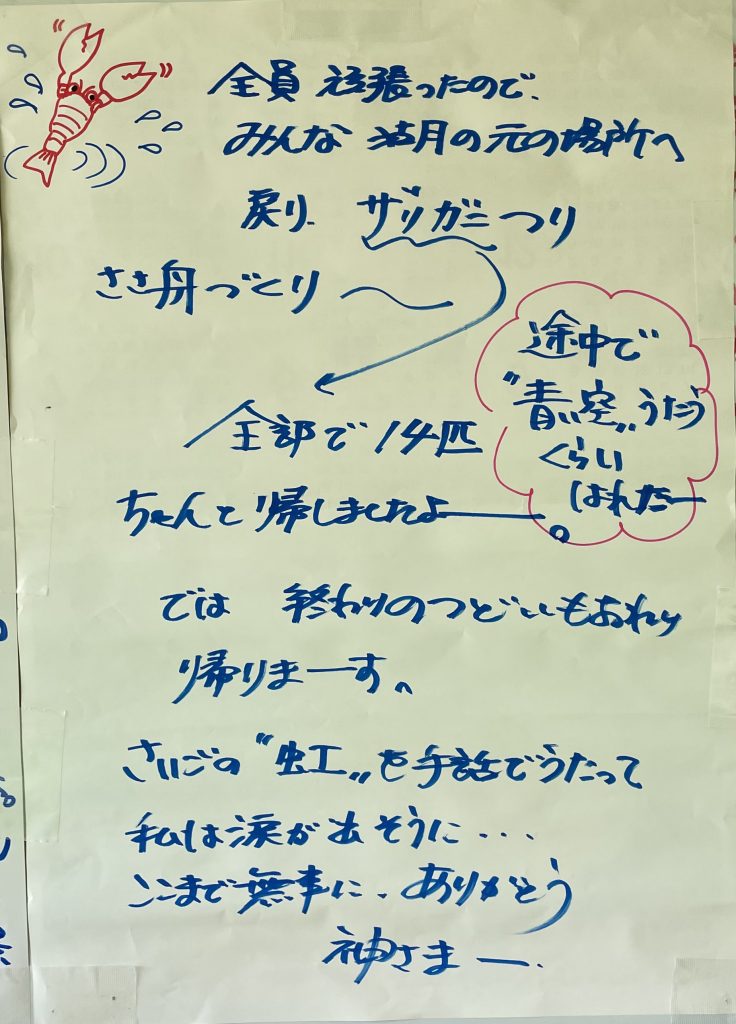 全員 頑張ったので、
みんな 沽月の元の場所へ
戻り、 ザリガニつり
ささ舟づくり
全部で14匹
ちゃんと帰しましたよー。
途中で
"青い空"うたう
くらい
はれたー
では 終わりのつどいもおわり
帰りまーす。
さいごの"虹"を手話でうたって
私は涙が出そうに・・・
ここまで無事に、ありがとう
神さまー、